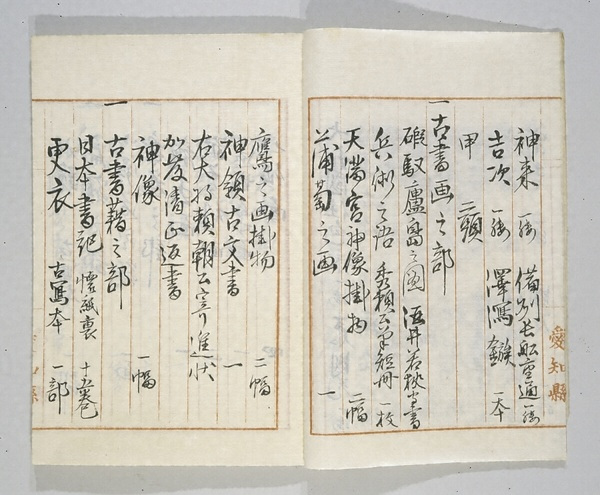 神来 一腰 備別長船重道一腰
吉次 一腰 澤瀉鏃 一本
甲 二頭
一古書画之部
蝦馭廬島之図 酒井若狭守書
兵術之語 秀頼公筆短冊 一枚
天満宮神像掛物 二幅
〻葡萄之画 一
鷹之画掛物 二幅
神領古文書 一
右大将頼朝公寄進状
加藤清正返書
神像 一幅
一古書籍之部
日本書記 懐紙裏 十五巻
更衣 古寫本 一部
愛知縣